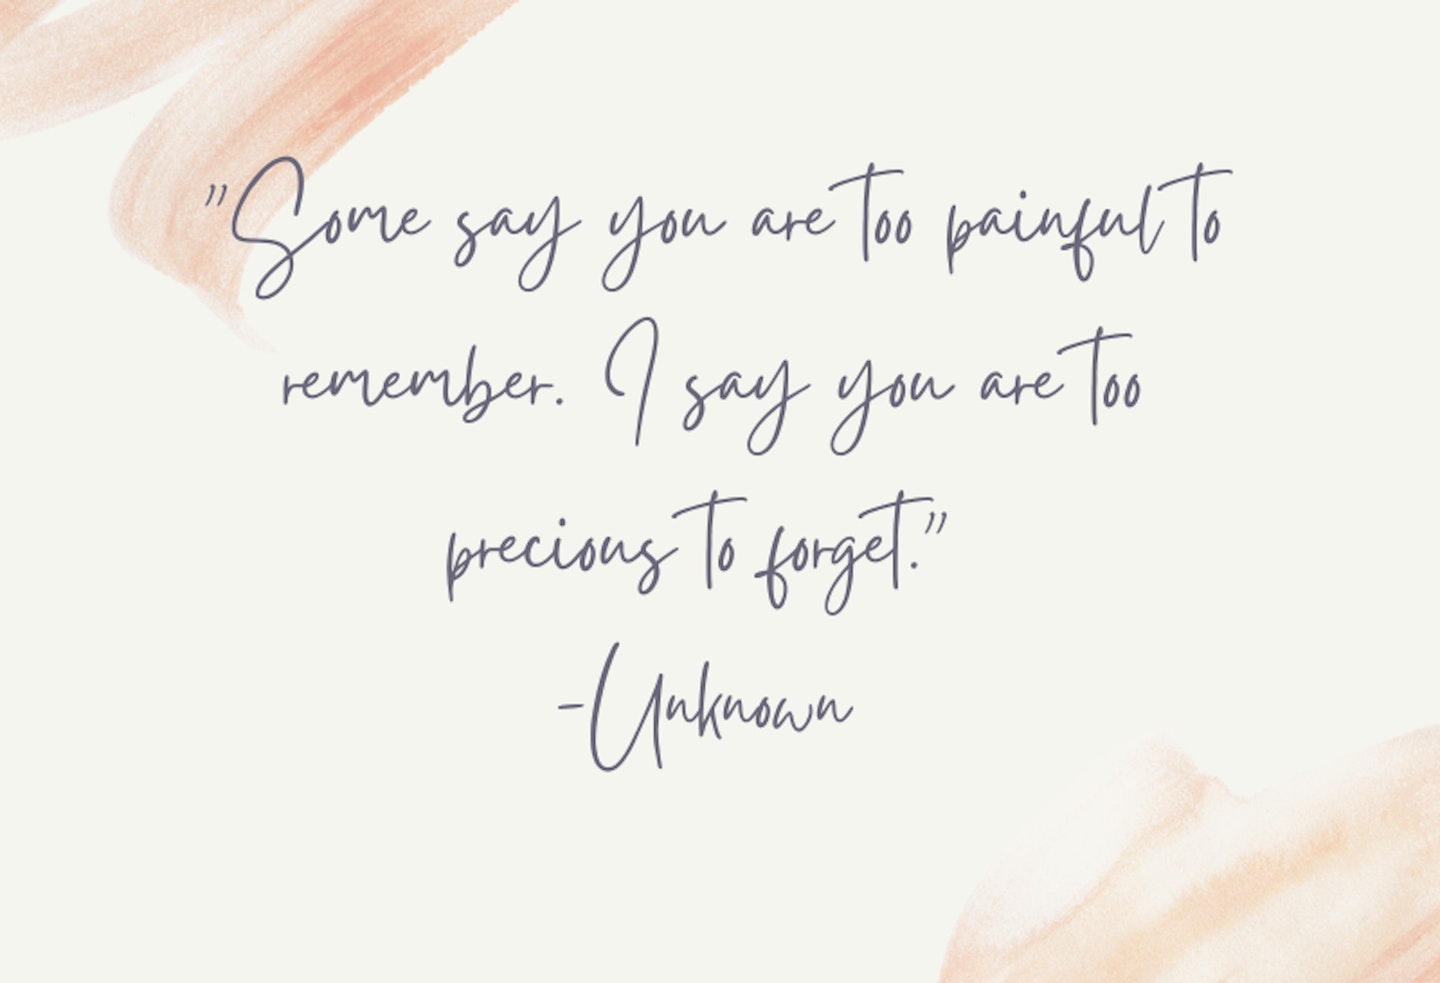 "Some say you are too painful to
remember. I say you are too
precious to forget."
-Unknown